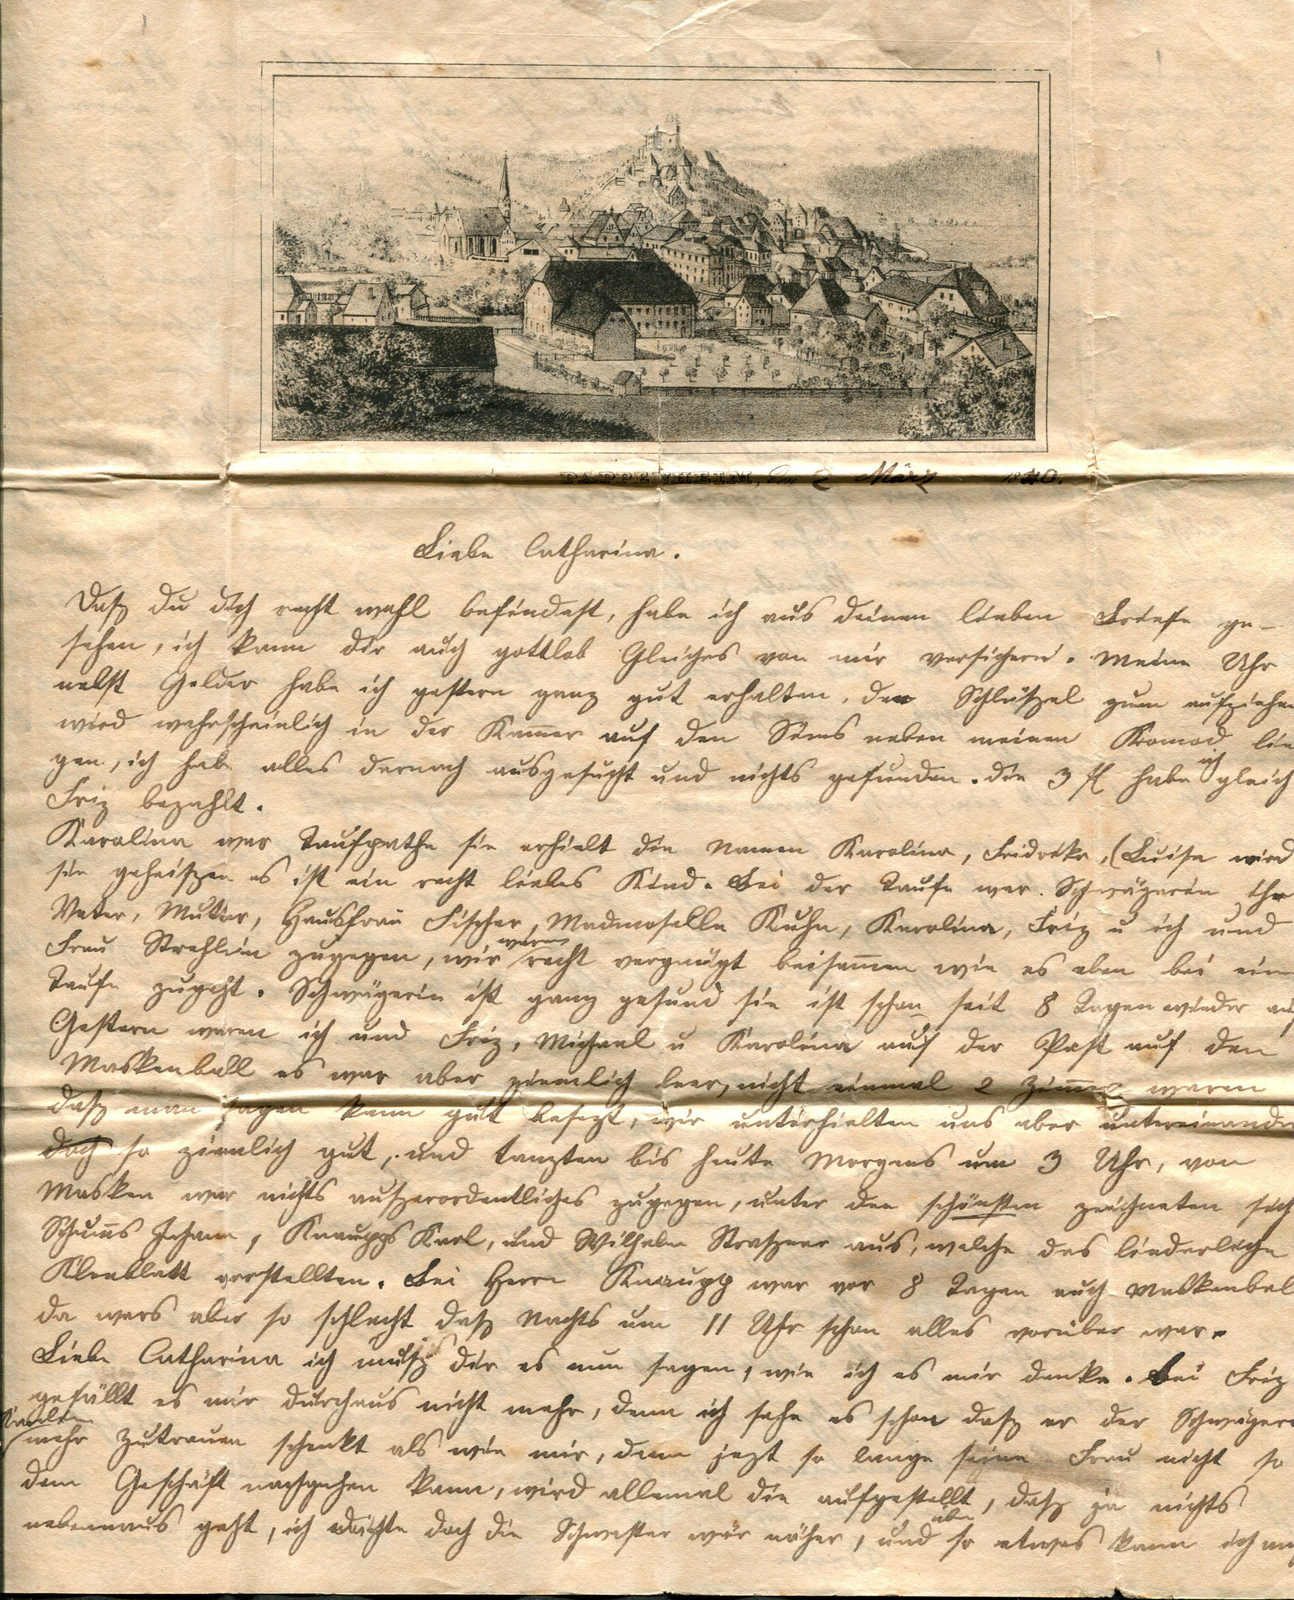 PAPPENHEIM, den 2 März 1840.
Liebe Catharina.
Daß du dich recht wohl befindest, habe ich aus deinen lieben Briefe ge-
sehen, ich kann dir auch gottlob Gleiches von mir versichern. Meine Uhr
nebst Gelder habe ich gestern ganz gut erhalten, den Schlüßel zum aufziehen
wird wahrscheinlich in der Kammer auf den Sims neben meinen Komod lie
gen, ich hab alles darnach ausgesucht und nichts gefunden. die 3 fl habe ich gleich
Friz bezahlt.
Karolina war Taufpathe sie erhielt die Namen Karolina, Fridrika, (Luise wird
sie geheißen es ist ein recht liebes Kind. Bei der Taufe war Schwägerin ihr
Vater, Mutter, Hausfrau Fischer, Madmoselle Kuhn, Karolina, Friz u ich und
Frau Strehlein zugegen, wir waren recht vergnügt beisam̄en wie es eben bei ein
Taufe zugeht. Schwägerin ist ganz gesund sie ist schon seit 8 Tagen wieder auf
Gestern waren ich und Friz, Michael u Karolina auf der Post auf den
Maskenball es war aber ziemlich leer, nicht einmal 2 Zim̄er waren
daß man sagen kann gut besezt, wir unterhielten uns aber untereinander
doch so ziemlich gut, und tanzten bis heute Morgens um 3 Uhr, von
Masken war nichts außerordentliches zugegen, unter den schönsten zeichneten sich
Johann, Knaupps Karl, und Wilhelm Straßner aus, welche das liederliche
Kleeblatt vorstellten. Bei Herrn Knaupp war vor 8 Tagen auch Maskenbal
da wars aber so schlecht daß Nachts um 11 Uhr schon alles vorüber war.
Liebe Catharina ich muß dir es nun sagen, wie ich es mir denke. Bei Friz
gefällt es mir durchaus nicht mehr, denn ich sehe es schon daß er der Schwägerin
Karolina mehr Zutrauen schenkt als wie mir, denn jezt so lange seine Frau nicht so
dem Geschäft nachgehen kann, wird allemal die aufgestellt, daß ja nichts
nebenaus geht, ich dächte doch die Schwester wär näher, und aber so etwas kann ich